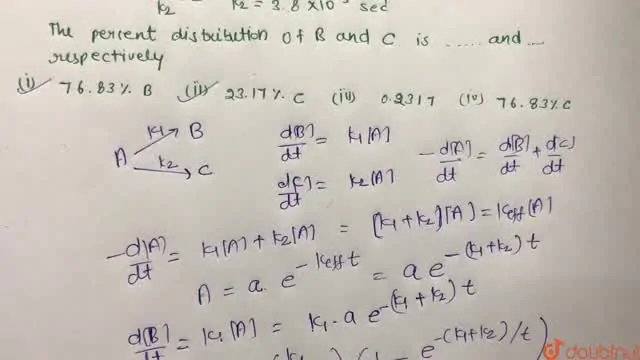 k₂ k₂ = 3.8 × 10 sec
The percent distribution of B and C is ..... and ....
respectively
(i) 76.83% B (ii) 23.17% C (iii) 0.2317 (iv) 76.83% C
A k₁ B k₂ C
d[B]/dt = k₁[A]
d[C]/dt = k₂[A]
-d[A]/dt = d[B]/dt + d[C]/dt
-d[A]/dt = k₁[A] + k₂[A] = [k₁+k₂][A] = keff[A]
A = a. e^-keff t = a e^-(k₁+k₂)t
d[B]/dt = k₁[A] = k₁. a e^-(k₁+k₂)t
e^-(k₁+k₂)/t)
doubtnut